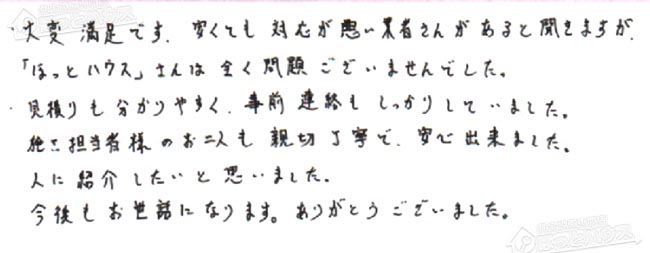 ・大変満足です。安くても対応が悪い業者さんがあると聞きますが、
「ほっとハウス」さんは全く問題ございませんでした。
・見積りも分かりやすく、事前連絡もしっかりしていました。
施工担当者様のお二人も親切丁寧で、安心出来ました。
人に紹介したいと思いました。
今後もお世話になります。ありがとうございました。